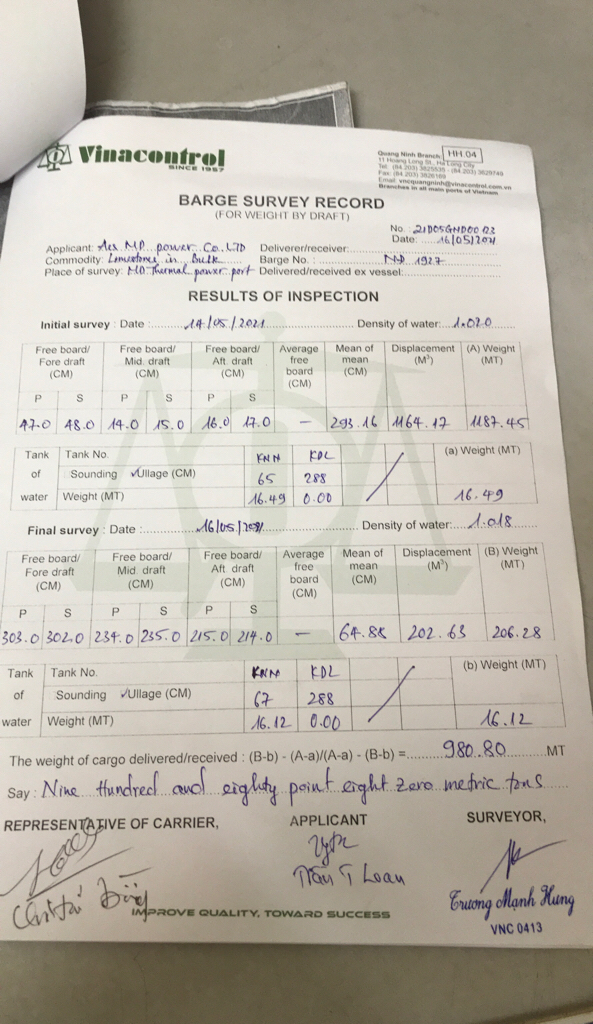 Vinacontrol
SINCE 1957
Quang Ninh Branch:
HH.04
11 Hoang Long St., Ha Long City
Tel: (84.203) 3825535 - (84.203) 3829749
Fax: (84.203) 3826169
Email: vncquangninh@vinacontrol.com.vn
Branches in all main ports of Vietnam
BARGE SURVEY RECORD
(FOR WEIGHT BY DRAFT)
No. 21D05GND00
Date: 16/05/2021
Applicant: Aes MD power Co. LTD Deliverer/receiver:
Commodity: Limestones in Bulk Barge No. : ND 1927
Place of survey: MD Thermal power port Delivered/received ex vessel:
RESULTS OF INSPECTION
Initial survey : Date : 14/05/2021 Density of water: 1.020
Free board/ Fore draft (CM) Free board/ Mid. draft (CM) Free board/ Aft. draft (CM) Average free board (CM) Mean of mean (CM) Displacement (M³) (A) Weight (MT)
P S P S P S
47.0 48.0 14.0 15.0 16.0 17.0 – 293.16 1164.17 1187.45
Tank Tank No. KNN KDL (a) Weight (MT)
of Sounding ✓Ullage (CM) 65 288
water Weight (MT) 16.49 0.00 16.49
Final survey : Date : 16/05/2021 Density of water: 1.018
Free board/ Fore draft (CM) Free board/ Mid. draft (CM) Free board/ Aft. draft (CM) Average free board (CM) Mean of mean (CM) Displacement (M³) (B) Weight (MT)
P S P S P S
303.0 302.0 234.0 235.0 215.0 214.0 – 64.88 202.63 206.28
Tank Tank No. KNN KDL (b) Weight (MT)
of Sounding ✓Ullage (CM) 67 288
water Weight (MT) 16.12 0.00 16.12
The weight of cargo delivered/received : (B-b) - (A-a)/(A-a) - (B-b) = 980.80 MT
Say : Nine Hundred and eighty point eight zero metric tons
REPRESENTATIVE OF CARRIER, APPLICANT SURVEYOR,
Trần T Loan
Trương Mạnh Hùng
VNC 0413
IMPROVE QUALITY, TOWARD SUCCESS